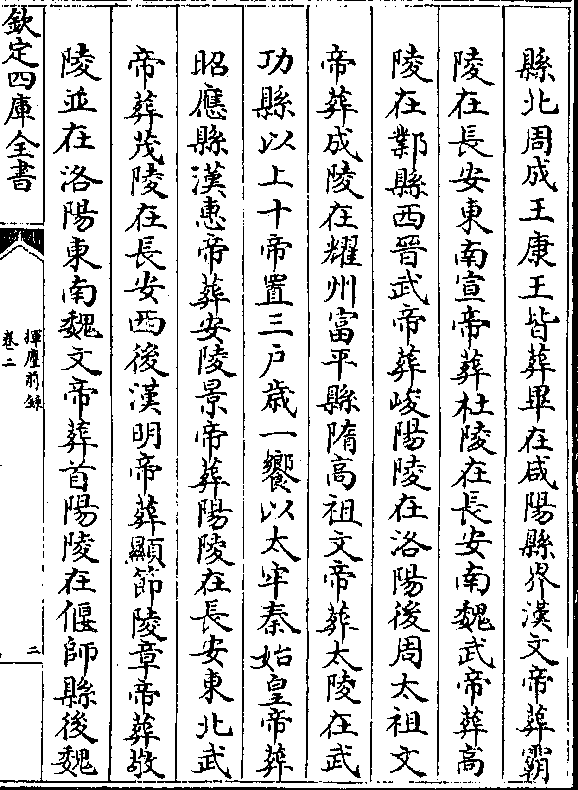 縣北周成王康王皆葬畢在咸陽縣界漢文帝葬霸
陵在長安東南宣帝葬杜陵在長安南魏武帝葬高
陵在鄴縣西晉武帝葬峻陽陵在洛陽後周太祖文
帝葬成陵在耀州富平縣隋高祖文帝葬太陵在武
功縣以上十帝置三户歳一饗以太牢秦始皇帝葬
昭應縣漢惠帝葬安陵景帝葬陽陵在長安東北武
帝葬茂陵在長安西後漢明帝葬顯節陵章帝葬敬
陵並在洛陽東南魏文帝葬首陽陵在偃師縣後魏
欽定四庫全書
揮麈前錄
卷二
三